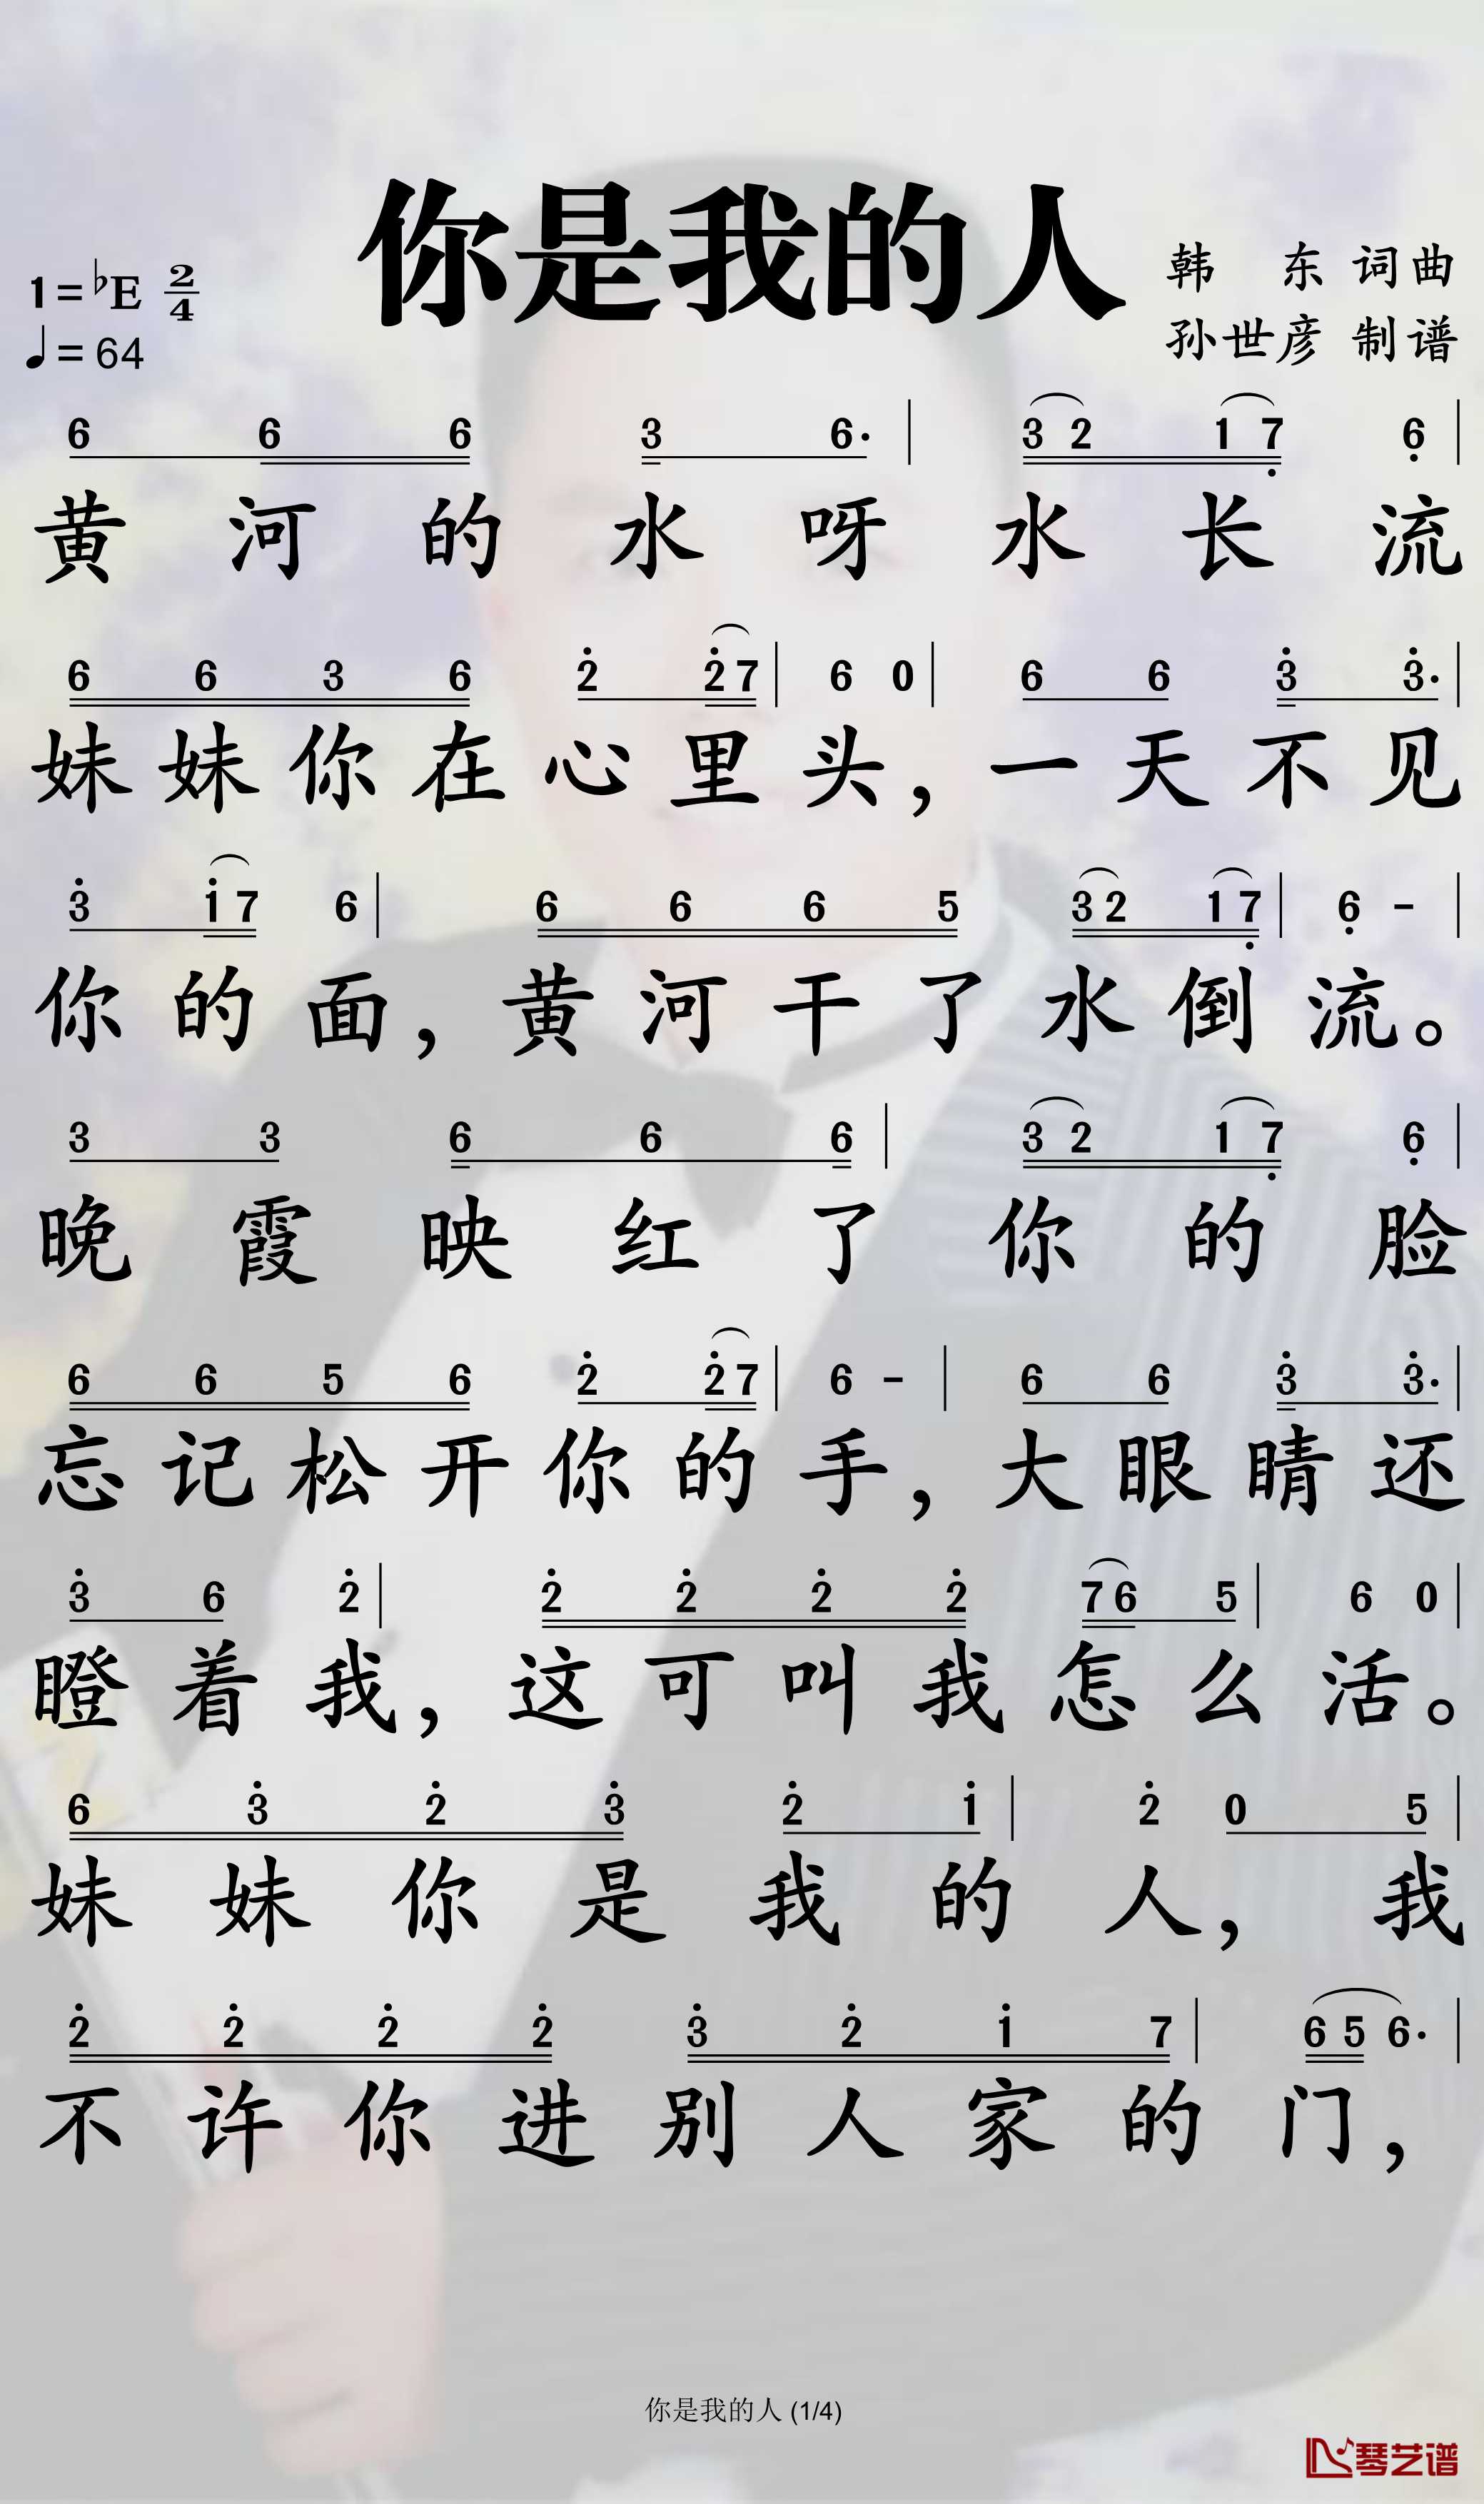 你是我的人
1=♭E 2/4
♩=64
韩 东 词曲
孙世彦 制谱
6 6 6 3 6· | 3 2 1 7̣ 6̣ |
黄河的水呀水长流
6 6 3 6 2̇ 2̇ 7 | 6 0 | 6 6 3̇ 3̇· |
妹妹你在心里头，一天不见
3̇ 1̇ 7 6 | 6 6 6 5 3 2 1 7̣ | 6̣ - |
你的面，黄河干了水倒流。
3 3 6 6 6 | 3 2 1 7̣ 6̣ |
晚霞映红了你的脸
6 6 5 6 2̇ 2̇ 7 | 6 - | 6 6 3̇ 3̇· |
忘记松开你的手，大眼睛还
3̇ 6 2̇ | 2̇ 2̇ 2̇ 2̇ 7 6 5 | 6 0 |
瞪着我，这可叫我怎么活。
6 3̇ 2̇ 3̇ 2̇ 1̇ | 2̇ 0 5 |
妹妹你是我的人，我
2̇ 2̇ 2̇ 2̇ 3̇ 2̇ 1̇ 7 | 6 5 6· |
不许你进别人家的门，
你是我的人 (1/4)
琴艺谱